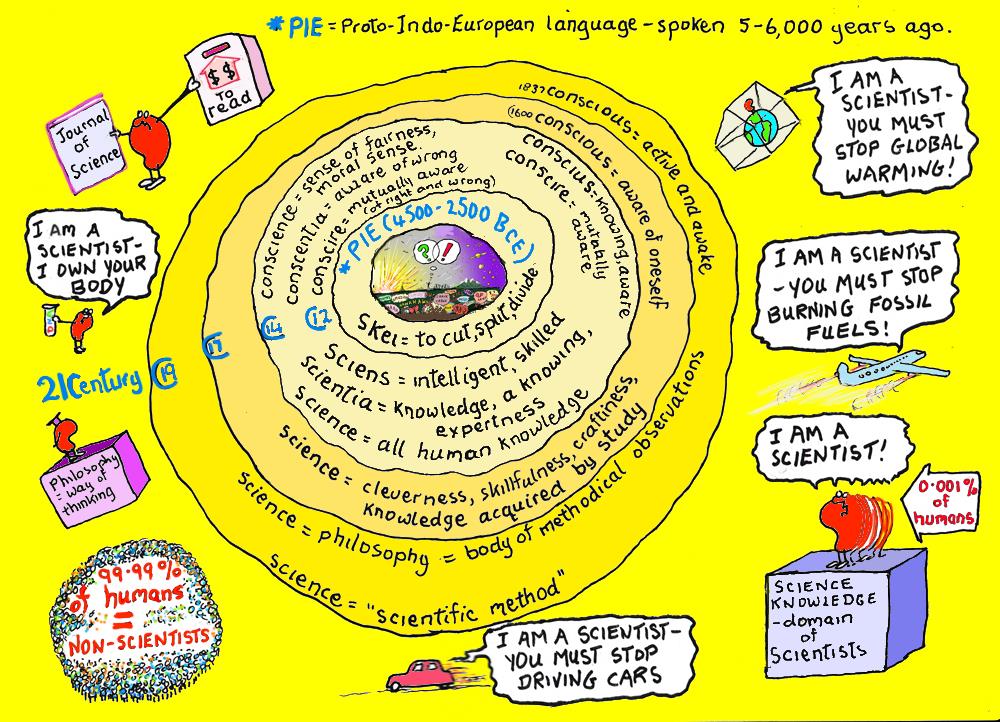 *PIE = Proto-Indo-European language - spoken 5-6,000 years ago.
$ $
TO
read
Journal
of
Science
I AM A
SCIENTIST-
YOU MUST
STOP GLOBAL
WARMING!
I AM A
SCIENTIST-
I OWN YOUR
BODY
I AM A SCIENTIST
-YOU MUST STOP
BURNING FOSSIL
FUELS!
1837 conscious = active and awake
1600 conscious = aware of oneself
conscius = knowing, aware
conscire = mutably
aware
conscience = sense of fairness,
moral sense.
conscentia = aware of wrong
conscire = mutually aware
(of right and wrong)
*PIE (4500-2500 BCE)
? !
SKei = to cut, split, divide
Sciens = intelligent, skilled
Scientia = knowledge, a knowing,
expertness
Science = all human knowledge
Science = cleverness, skillfulness, craftiness,
knowledge acquired by study
Science = philosophy = body of methodical observations
Science = "scientific method"
21Century C19 C17 C14 C12
Philosophy
= way of
thinking
99.99%
of humans
=
NON-SCIENTISTS
I AM A
SCIENTIST!
0.001%
of
humans
SCIENCE
KNOWLEDGE
-domain
of
Scientists
I AM A SCIENTIST-
YOU MUST STOP
DRIVING CARS